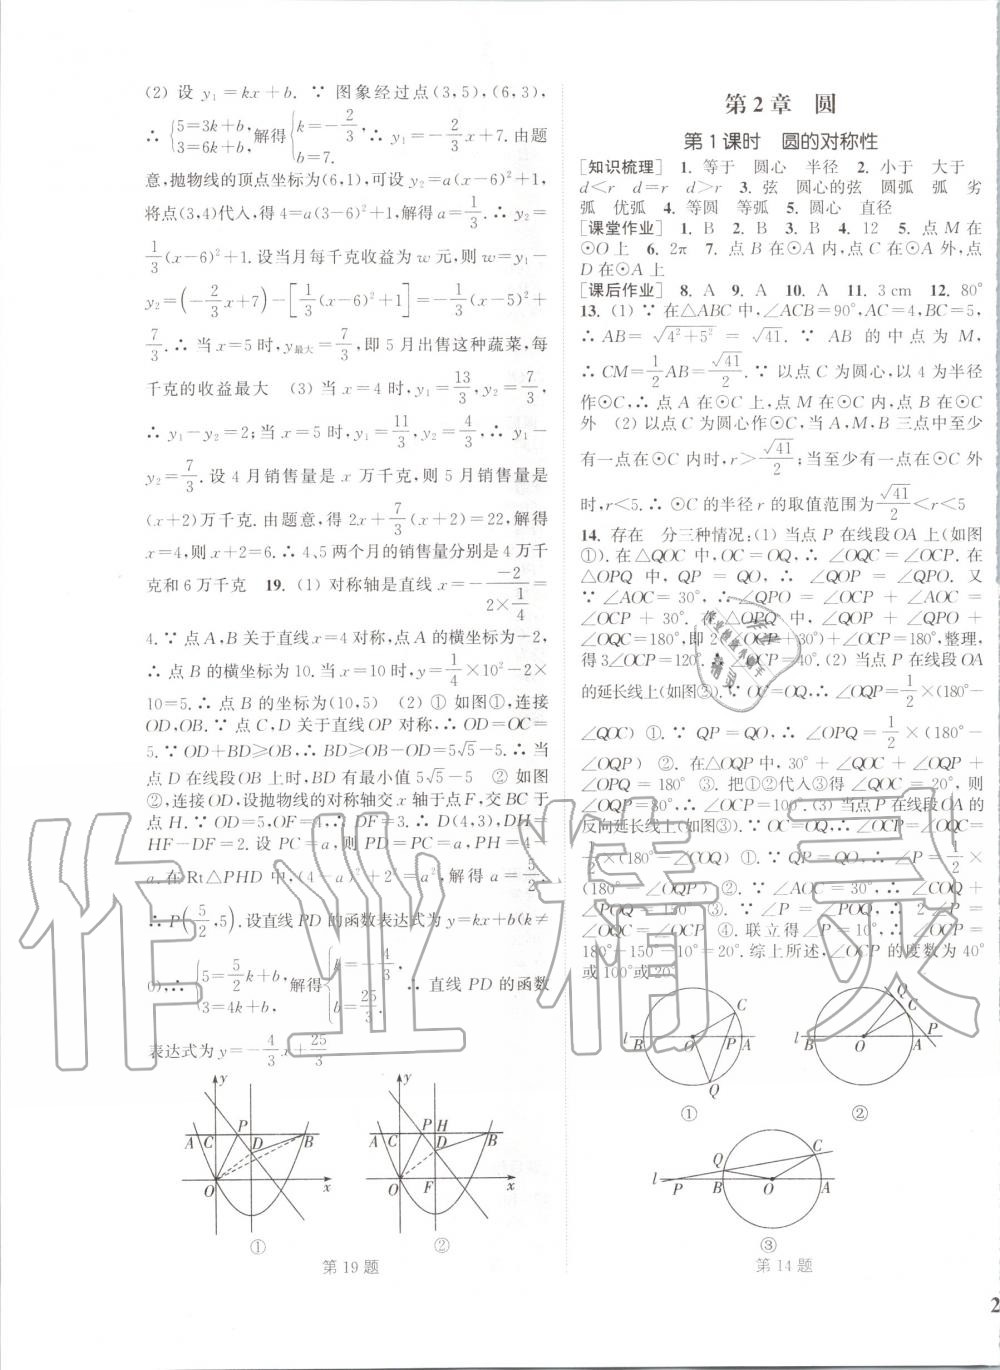 (2) 设 y₁=kx+b.∵ 图象经过点(3,5),(6,3),
∴{5=3k+b, 3=6k+b, 解得{k=-2/3, b=7. ∴ y₁=-2/3x+7.由题
意,抛物线的顶点坐标为(6,1),可设 y₂=a(x-6)²+1,
将点(3,4)代入,得 4=a(3-6)²+1,解得 a=1/3.∴ y₂=
1/3(x-6)²+1.设当月每千克收益为 w 元,则 w=y₁-
y₂=(-2/3x+7)-[1/3(x-6)²+1]=-1/3(x-5)²+
7/3.∴ 当 x=5 时,y最大=7/3,即 5 月出售这种蔬菜,每
千克的收益最大 (3) 当 x=4 时,y₁=13/3,y₂=7/3,
∴ y₁-y₂=2;当 x=5 时,y₁=11/3,y₂=4/3,∴ y₁-
y₂=7/3.设 4 月销售量是 x 万千克,则 5 月销售量是
(x+2)万千克.由题意,得 2x+7/3(x+2)=22,解得
x=4,则 x+2=6.∴ 4、5 两个月的销售量分别是 4 万千
克和 6 万千克 19. (1) 对称轴是直线 x=-(-2)/(2×1/4)=
4.∵ 点 A,B 关于直线 x=4 对称,点 A 的横坐标为-2,
∴ 点 B 的横坐标为 10.当 x=10 时,y=1/4×10²-2×
10=5.∴ 点 B 的坐标为(10,5) (2) ① 如图①,连接
OD,OB.∵ 点 C,D 关于直线 OP 对称,∴ OD=OC=
5.∵ OD+BD≥OB,∴ BD≥OB-OD=5√5-5.∴ 当
点 D 在线段 OB 上时,BD 有最小值 5√5-5 ② 如图
②,连接 OD,设抛物线的对称轴交 x 轴于点 F,交 BC 于
点 H.∵ OD=5,OF=4,∴ DF=3.∴ D(4,3),DH=
HF-DF=2.设 PC=a,则 PD=PC=a,PH=4-
a.在 Rt△PHD 中,(4-a)²+2²=a²,解得 a=5/2.
∴ P(5/2,5).设直线 PD 的函数表达式为 y=kx+b(k≠
0),∴{5=5/2k+b, 3=4k+b, 解得{k=-4/3, b=25/3. ∴ 直线 PD 的函数
表达式为 y=-4/3x+25/3
y
A C P B
D
O x
①
y
A C P H B
D
O F x
②
第 19 题
第 2 章 圆
第 1 课时 圆的对称性
[知识梳理] 1. 等于 圆心 半径 2. 小于 大于
d<r d=r d>r 3. 弦 圆心的弦 圆弧 弧 劣
弧 优弧 4. 等圆 等弧 5. 圆心 直径
[课堂作业] 1. B 2. B 3. B 4. 12 5. 点 M 在
⊙O 上 6. 2π 7. 点 B 在⊙A 内,点 C 在⊙A 外,点
D 在⊙A 上
[课后作业] 8. A 9. A 10. A 11. 3 cm 12. 80°
13. (1) ∵ 在△ABC 中,∠ACB=90°,AC=4,BC=5,
∴ AB=√(4²+5²)=√41.∵ AB 的中点为 M,
∴ CM=1/2AB=√41/2.∵ 以点 C 为圆心,以 4 为半径
作⊙C,∴ 点 A 在⊙C 上,点 M 在⊙C 内,点 B 在⊙C
外 (2) 以点 C 为圆心作⊙C,当 A,M,B 三点中至少
有一点在⊙C 内时,r>√41/2;当至少有一点在⊙C 外
时,r<5.∴ ⊙C 的半径 r 的取值范围为√41/2<r<5
14. 存在 分三种情况:(1) 当点 P 在线段 OA 上(如图
①).在△QOC 中,OC=OQ,∴ ∠OQC=∠OCP.在
△OPQ 中,QP=QO,∴ ∠QOP=∠QPO.又
∵ ∠AOC=30°,∴ ∠QPO=∠OCP+∠AOC=
∠OCP+30°.在△OPQ 中,∠QOP+∠QPO+
∠OQC=180°,即 2(∠OCP+30°)+∠OCP=180°,整理,
得 3∠OCP=120°.∴ ∠OCP=40°.(2) 当点 P 在线段 OA
的延长线上(如图②).∵ OC=OQ,∴ ∠OQP=1/2×(180°-
∠QOC) ①.∵ QP=QO,∴ ∠OPQ=1/2×(180°-
∠OQP) ②.在△OQP 中,30°+∠QOC+∠OQP+
∠OPQ=180° ③.把①②代入③得∠QOC=20°,则
∠OQP=80°.∴ ∠OCP=100°.(3) 当点 P 在线段 OA 的
反向延长线上(如图③).∵ OC=OQ,∴ ∠OCP=∠OQC=
1/2×(180°-∠COQ) ①.∵ QP=QO,∴ ∠P=1/2×
(180°-∠OQP) ②.∵ ∠AOC=30°,∴ ∠COQ+
∠POQ=150° ③.∵ ∠P=∠POQ,∴ 2∠P=
∠OQC=∠OCP ④.联立得∠P=10°.∴ ∠OCP=
180°-150°-10°=20°.综上所述,∠OCP 的度数为 40°
或 100°或 20°
C
l B O P A
Q
①
Q
C
P
l B O A
②
Q C
l P B O A
③
第 14 题
2
作业精灵